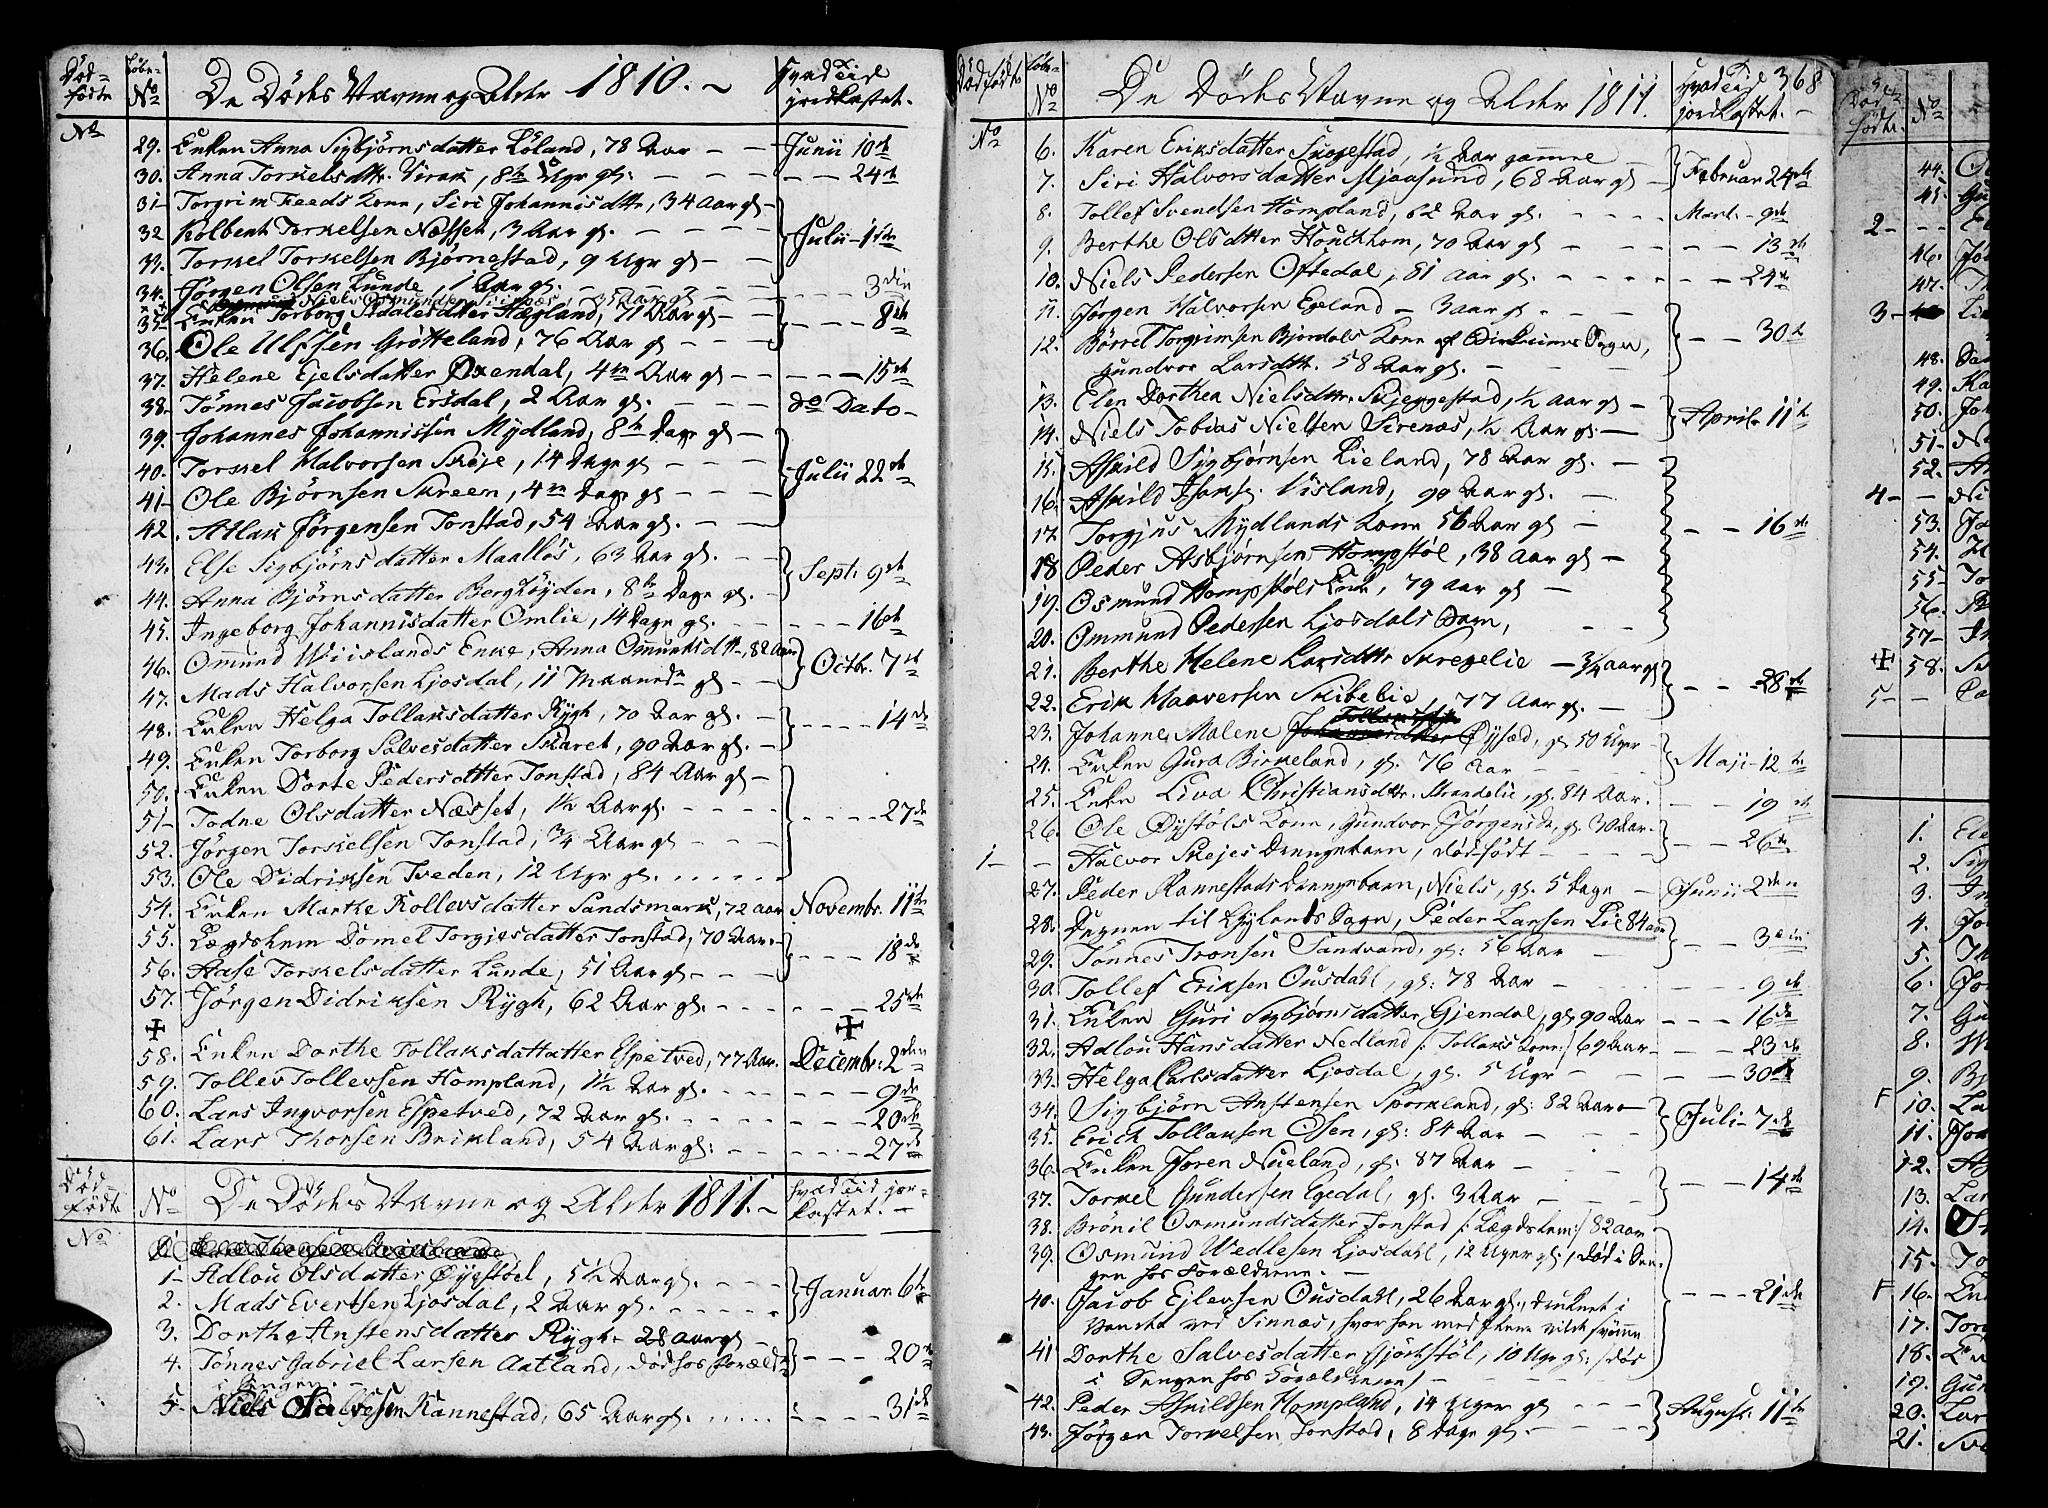 Død-
fødte
Løbe-
No
De Dødes Navne og Alder 1810. ~
hvad Tid
jordkastet.
No
29. Enken Anna Sigbjørnsdatter Løland, 78 Aar — — Junii 10de
30. Anna Torkelsdtr. Virak, 8te Uger gl: — — — — — 24de
31- Torgrim Feeds Kone, Siri Johannisdtr, 34 Aar gl —
32 Kolbent Torkelsen Næssen, 3 Aar gl. — — — — Julii - 1ste
33. Torkel Torkelsen Bjørnestad, 9 Uger gl — —
34. Jørgen Olsen Lunde, 1 Aar gl. — — — — — — 3die
Niels Osmundsen Sirenæs 35 Aar gl —
35. Enken Torborg Sdalesdatter Hægland, 71 Aar gl — — — — — 8de
36. Ole Ulfsen Grøtteland, 76 Aar gl — — —
37. Helene Ejelsdatter Øxendal, 4re Aar gl — — — — 15de
38- Tønnes Jacobsen Ersdal, 2 Aar gl. — — — — do Dato -
39. Johannes Johannissen Mydland, 8te Dage gl —
40. Torkel Halvorsen Skeje, 14 Dage gl — — — Julii 22de
41- Ole Bjørnsen Skreen, 4re Dage gl — — —
42. Atlak Jørgensen Tonstad, 54 Aar gl. — —
43. Else Sigbjørnsdatter Maalløs, 63 Aar gl. — — Sept: 9de
44. Anna Bjørnsdatter Berghøyden, 8te Dage gl. —
45. Ingeborg Johannisdatter Omlie, 14 Dage gl. — — — — — 16de
46. Ommund Wiislands Enke, Anna Ommundsdtr, 82 Aar Octbr. 7de
47. Mads Halvorsen Ljosdal, 11 Maaneder gl — —
48. Enken Helga Tollaksdatter Rygh, 70 Aar gl. — — — — — 14de
49. Enken Torborg Salvesdatter Skaret, 90 Aar gl.
50. Enken Dorte Pedersdatter Tonstad, 84 Aar gl —
51- Todne Olsdatter Næsset, 1½ Aar gl. — — — — — — — 27de
52. Jørgen Torkelsen Tonstad, ¾ Aar gl — — —
53. Ole Didriksen Tveden, 12 Uger gl. ......
54. Enken Marthe Rollevsdatter Sandsmark, 72 aar Novembr. 11te
55. Lægdslem Domel Torgiesdatter Tonstad, 70 Aar. — — — 18de
56. Aase Torkelsdatter Lunde, 51 Aar gl — — —
57. Jørgen Didriksen Rygh, 62 Aar gl. — — — — — — 25de
58. Enken Dorthe Tollaksdattatter Espetved, 77 Aar. Decembr: 2den
59. Tollev Tollevsen Hompland, 1½ Aar gl. — — — — — 9de
60. Lars Ingvorsen Espetved, 72 Aar gl. — — — — — 20de
61. Lars Thorsen Brikland, 54 Aar gl: — — — — — 27de
Død-
fødte
No
De Dødes Navne og Alder 1811. ~
hvad Tid jor-
kastet. —
No
1- Adlou Olsdatter Øygstøel, 5½ Aar gl. — — — Januar. 6te
2. Mads Evertsen Ljosdal, 2 Aar gl. — — — — —
3. Dorthe Anstensdatter Rygh - 28 aar gl — — — — 20de
4. Tønnes Gabriel Larsen Aatland, død hos Foræld:
i Sengen. —
5- Niels Salvesen Kannestad, 65 Aar gl. ..... — — — — 31te
Dødfødte
Løbe-
No
De Dødes Navne og Alder 1811.
hvad Tid
jordkastet. —
368
No
6. Karen Eriksdatter Skogestad, ½ Aar gammel —
7. Siri Halvorsdatter Mjaasund, 68 Aar gl — Februar 24de
8. Tollef Svendsen Hompland, 62 Aar gl. — — — — Mart. - 9de
9. Berthe Olsdatter Houckhom, 70 Aar gl — — — — — 13de
10. Niels Pedersen Oftedal, 81 Aar gl. — — — — — — 24de
11. Jørgen Halvorsen Egeland — 3 aar gl - — —
12. Børrel Torgrimsen Bjordals Kone af Birkrems Sogn, — — 30te
Gundvor Larsdtr. 58 Aar gl. — — —
13. Elen Dorthea Nielsdtr. Skjeggestad, ½ Aar gl —
14. Niels Tobias Nielsen Sirenæs, ½ Aar gl: — April. 11te
15. Askild Sigbjørnsen Lieland, 78 Aar gl. —
16. Askild Isaks. Visland, 90 Aar gl. —
17. Torgius Mydlands Kone 56 Aar gl — — — 16de
18 Peder Asbjørnsen Hompstøl, 38 Aar gl —
19. Osmund Hompstøls Enke, 79 Aar gl —
20. Ommund Pedersen Ljosdals Barn, — —
21. Berthe Helene Larsdtr Skregelie — ¾ aar gl
22. Erik Haaversen Skibelie, 77 Aar gl. — — — 28de
23. Johanne Malene Tollevsdtr Øysæd, gl 50 Uger —
24. Enken Gurå Birkeland, gl: 76 Aar — — — Maji - 12te
25. Enke Liva Christiansdtr. Strandelie, gl. 84 Aar. — — 19de
26. Ole Øystøls Kone, Gundvor Jørgensd, gl. 30 Aar. — — — 26de
1- — Halvor Skejes Drengebarn, dødfødt — — —
27. Peder Rannestads Drengebarn, Niels, gl. 5 Dage — Junii 2den
28. Degnen til Gyland Sogn, Peder Larsen Lie 84 aar — — 3die
29. Tønnes Tronsen Sandvand, gl: 56 Aar —
30. Tollef Eriksen Ousdahl, gl: 78 Aar — — — 9de
31. Enken Guri Sigbjørnsdatter Gjendal, gl 90 Aar — — — 16de
32. Adlou Hansdatter Nedland /: Tollaks Kone :/ 69 Aar — — — 23de
33. Helga Carlsdatter Ljosdal, gl. 5 Uger — — — 30te
34. Sigbjørn Anstensen Sporkland, gl: 82 Aar — Juli - 7de
35. Erich Tollaksen Osen, gl: 84 Aar — —
36. Enken Joren Nueland, gl: 87 Aar — — — 14de
37. Torkel Gundersen Egedal, gl. 3 Aar — —
38. Brønil Osmundsdatter Tonstad /: Lægdslem :/ 82 aar
39. Osmund Wedlesen Ljosdahl, 12 Uger gl: / død i Sen-
gen hos Forældrene. —
40. Jacob Ejlevsen Ousdahl, 26 Aar gl., druknet i — — — 21de
Vandet ved Sinnæs, hvor han med Flere vilde svømme
41 Dorthe Salvesdatter Gjørstøl, 10 Uger gl: / død
i Sengen hos Forældrene /
42. Peder Askildsen Hompland, 14 Uger gl — — — August: 11te
43. Jørgen Torkelsen Tonstad, 8 Dage gl — — —
Død-
fødte.
No.
44.
45.
2-
46.
47.
3-
48.
49.
50.
51-
52.
4-
53.
54.
55-
56.
57-
58.
5-
1.
2.
3.
4.
5.
6.
7.
8.
9.
F 10.
11.
12.
13.
14.
15.
F 16.
17.
18.
19.
20.
21.